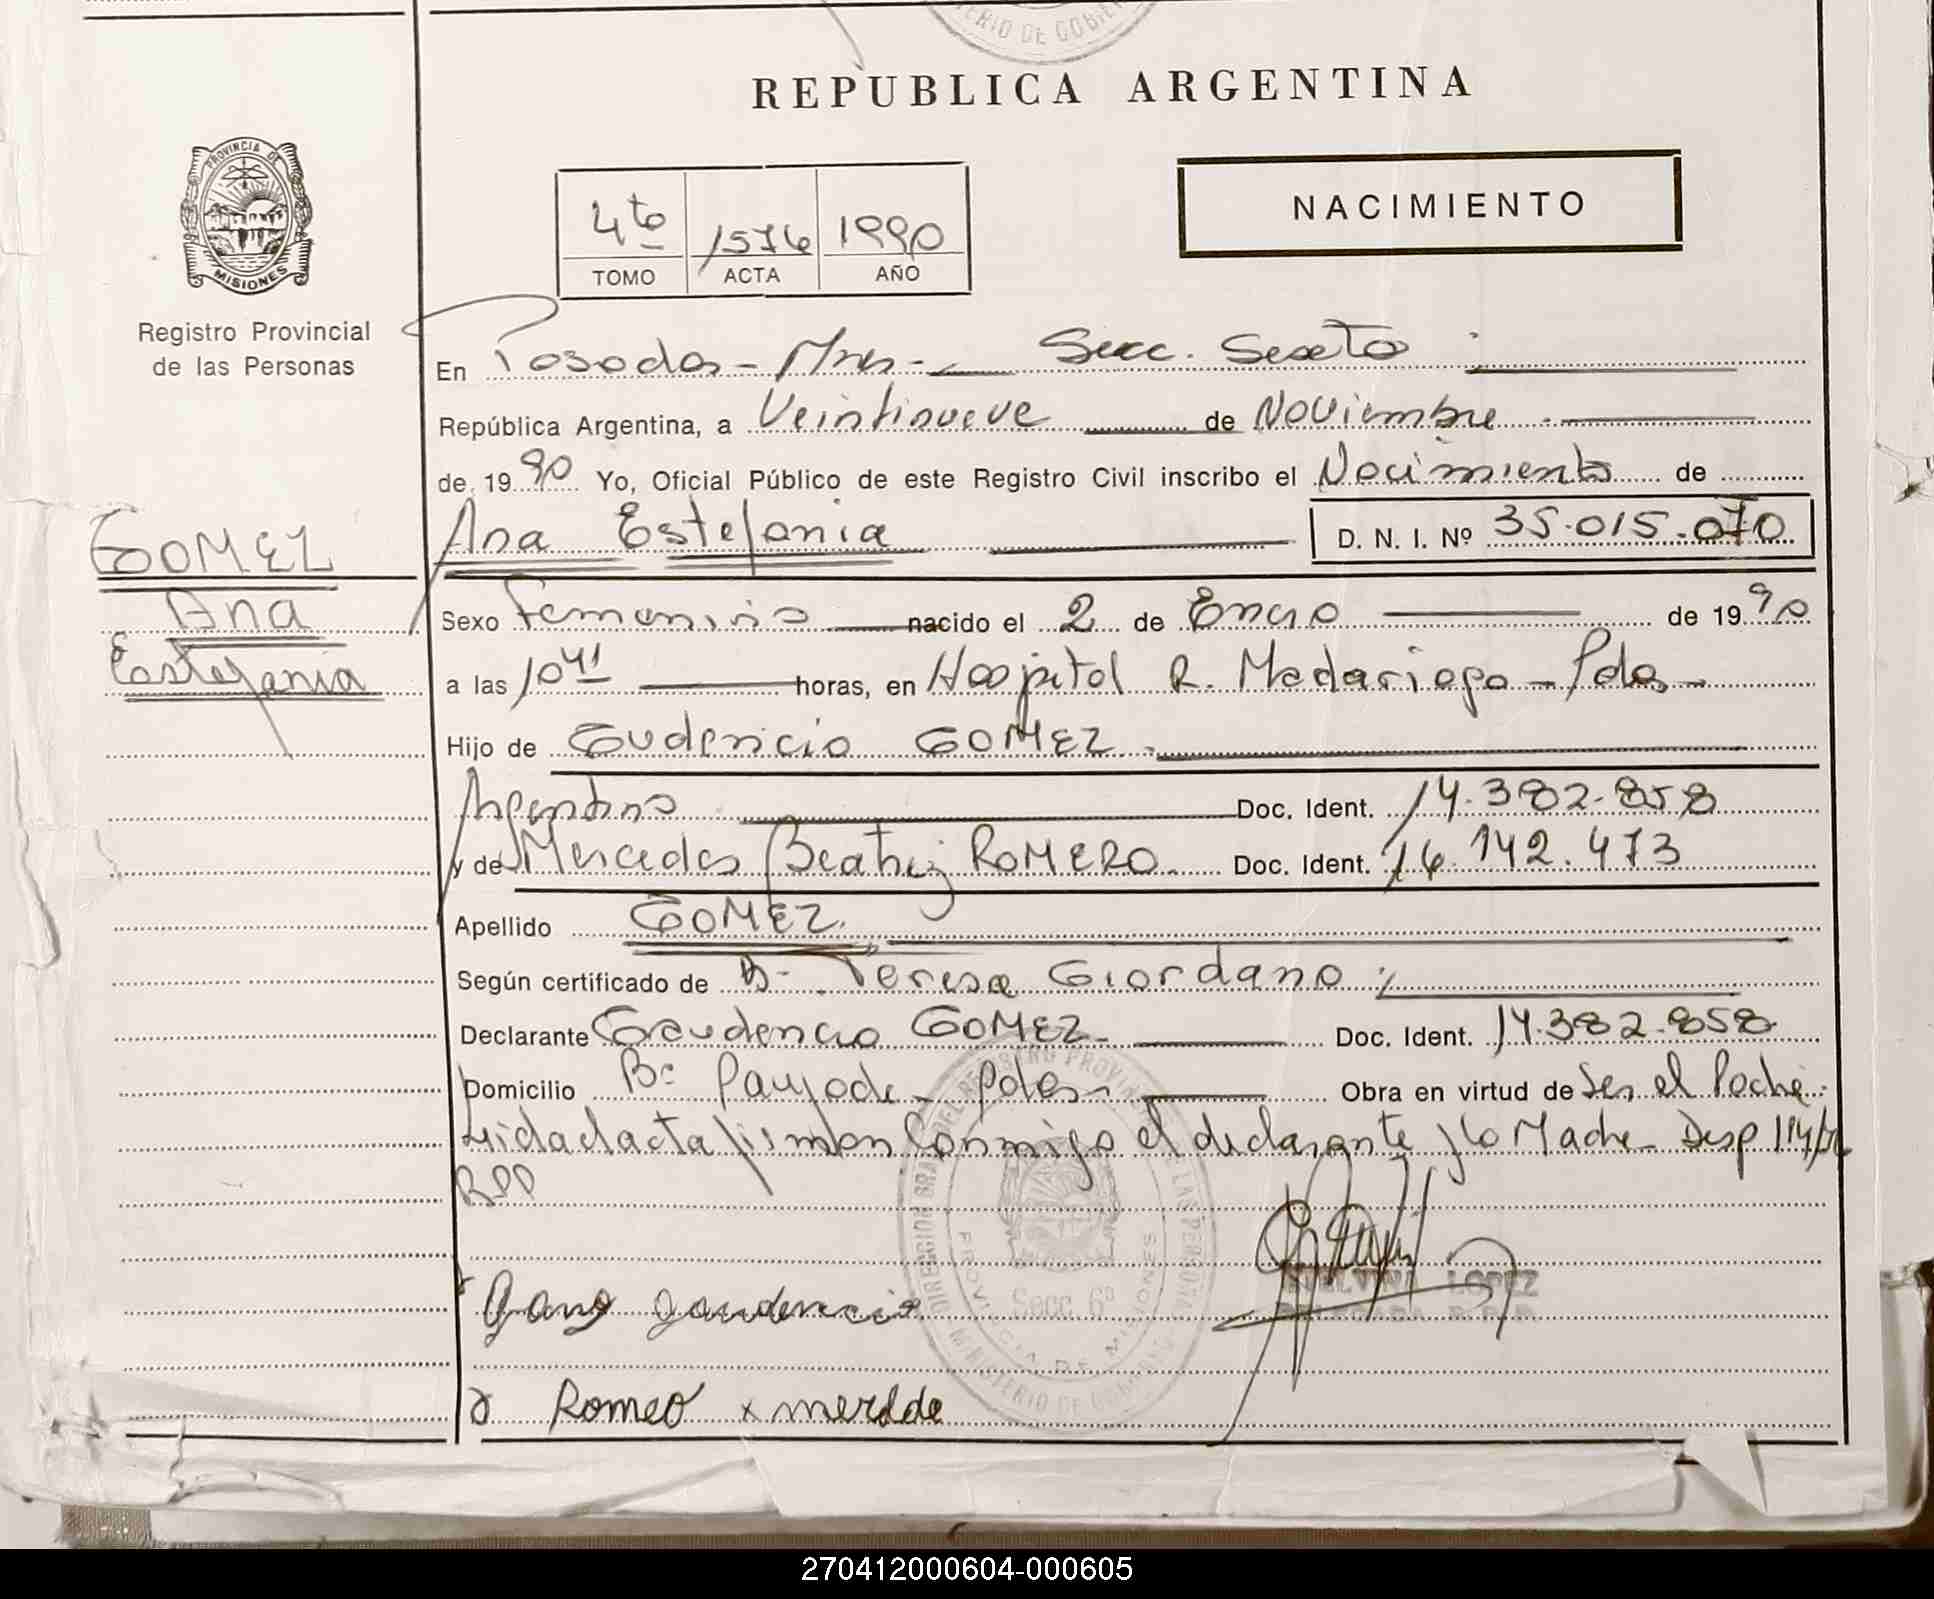 MINISTERIO DE GOBIERNO
REPUBLICA ARGENTINA
PROVINCIA DE MISIONES
Registro Provincial
de las Personas
4to TOMO 1576 ACTA 1990 AÑO
NACIMIENTO
En Posadas - Mnes - Secc. Sexta
República Argentina, a Veintinueve de Noviembre
de 1990 Yo, Oficial Público de este Registro Civil inscribo el Nacimiento de
Ana Estefania D. N. I. Nº 35.015.070
GOMEZ
Ana
Estefania
Sexo Femenino nacido el 2 de Enero de 1990
a las 10 41 horas, en Hospital R. Madariaga - Pdas -
Hijo de Gudencio GOMEZ
Argentino Doc. Ident. 14.382.858
y de Mercedes Beatriz ROMERO Doc. Ident. 16.142.473
Apellido GOMEZ
Según certificado de Teresa Giordano
Declarante Gaudencio GOMEZ Doc. Ident. 14.382.858
Domicilio Bº Payode - Pdas Obra en virtud de Ser el Padre
Leida el acta firman Conmigo el declarante y la Madre - Disp 114/
RPP
gaudencio
Romeo x merdde
DIRECCION GRAL DEL REGISTRO PROVINCIAL DE LAS PERSONAS
PROVINCIA DE MISIONES
Secc. 6ª
MINISTERIO DE GOBIERNO
LOPEZ
DELEGADA R.P.P.
270412000604-000605